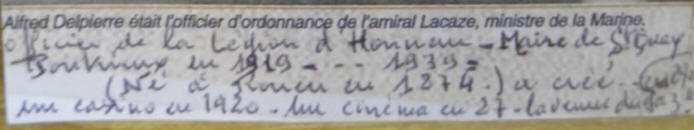 Alfred Delpierre était l'officier d'ordonnance de l'amiral Lacaze, ministre de la Marine.
officier de la Légion d'Honneur - Maire de St Quay
Portrieux en 1919 - - - 1939 =
(Né à Rouen en 1874.) a créé
un casino en 1920 - un cinéma en 27 - l'avenue du